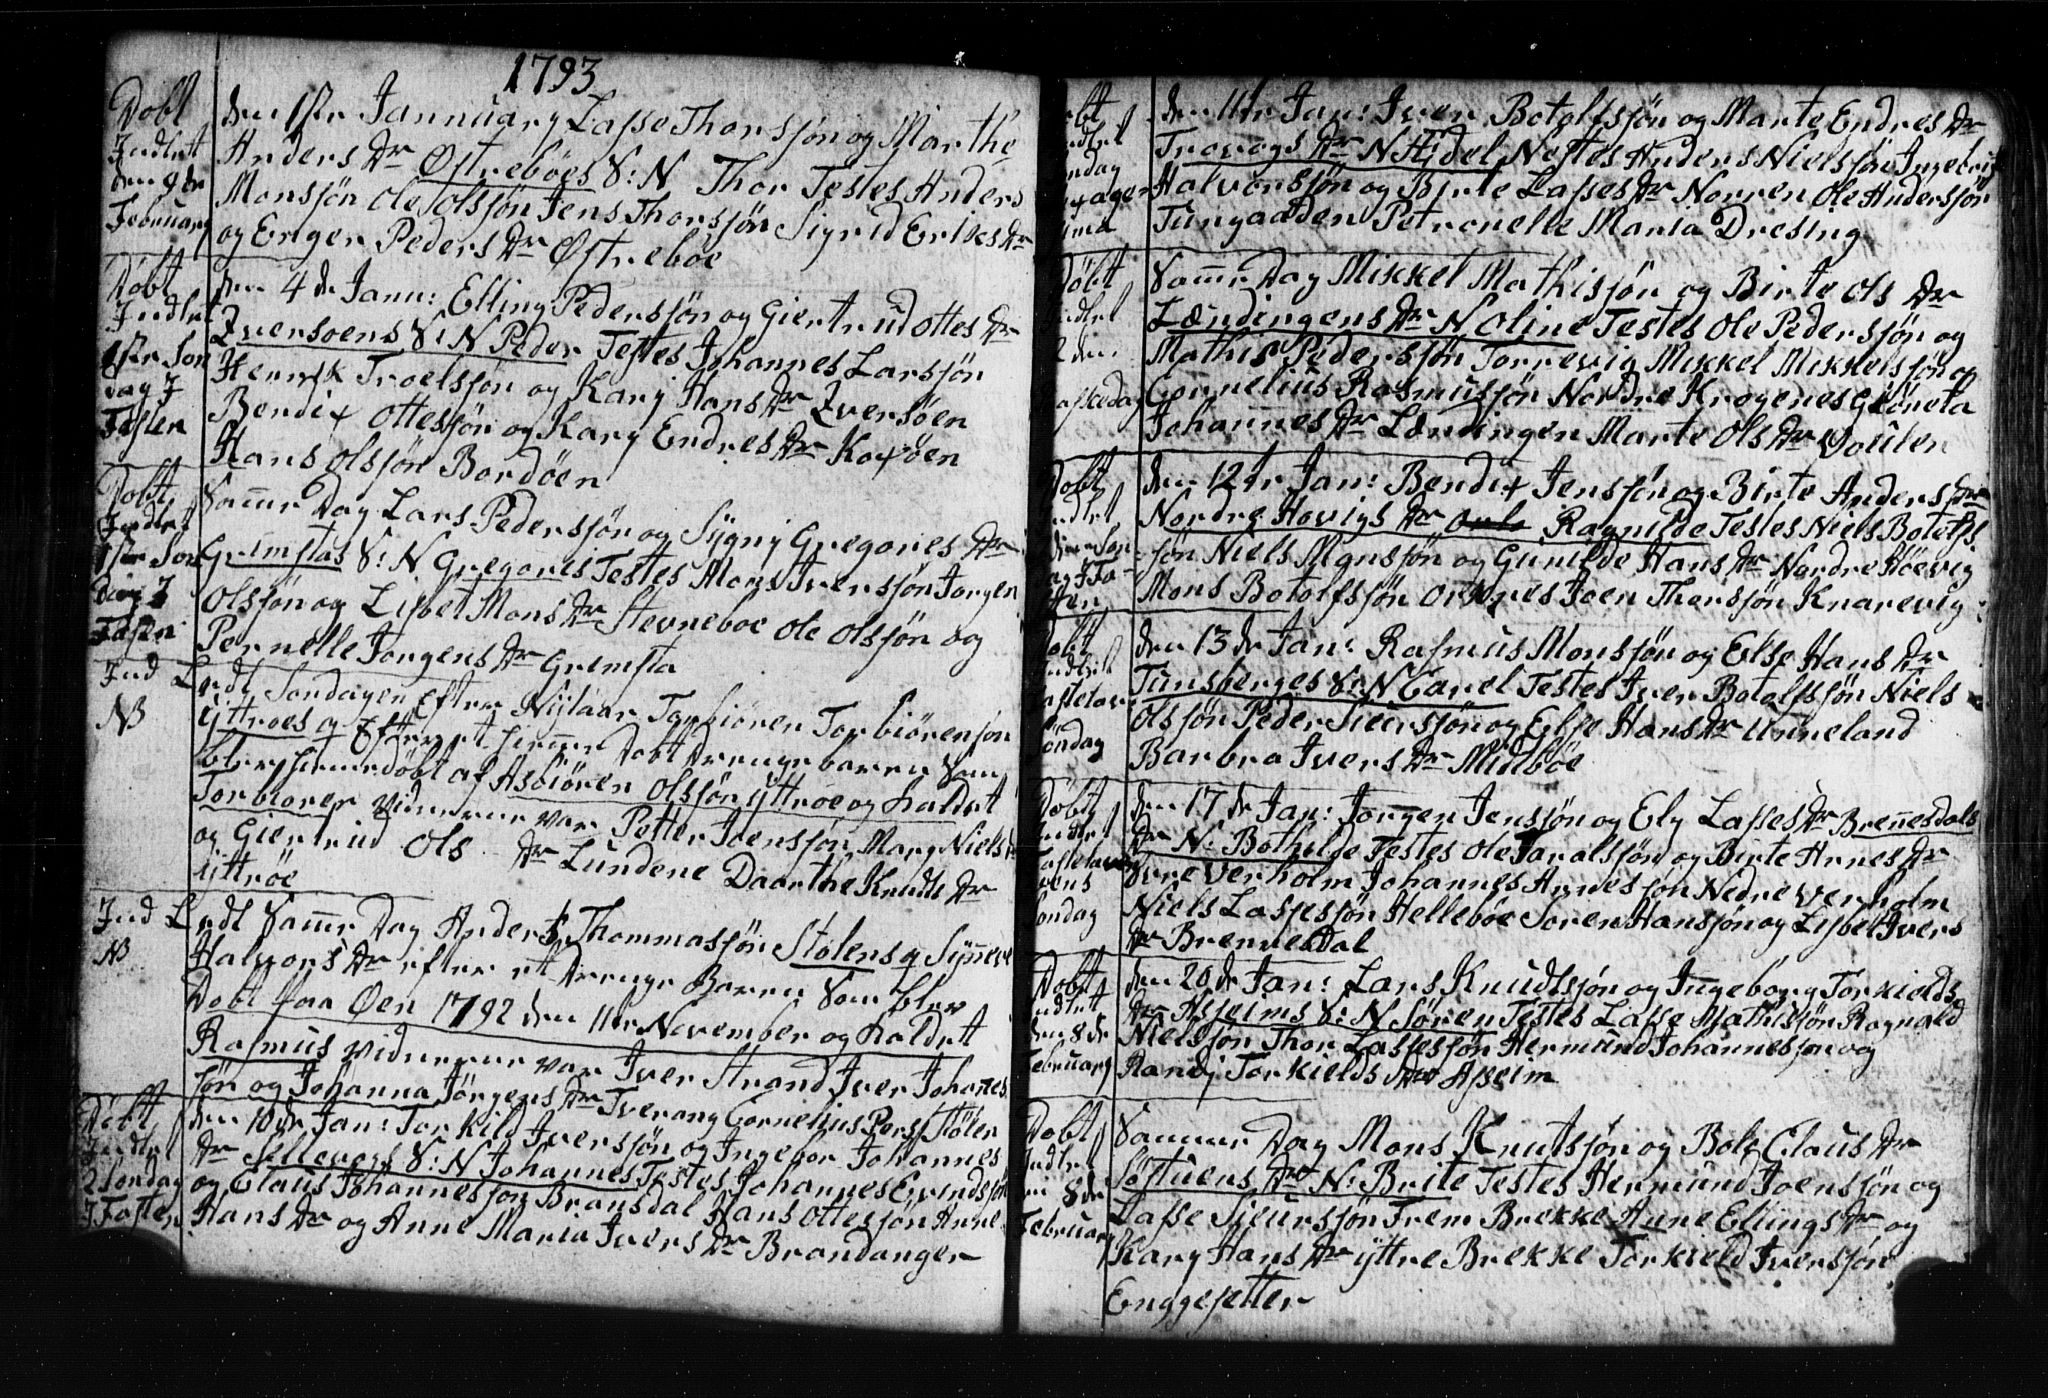 1793
Døbt
Indlet
den 9 de
February
den 1ste Jannuary Lasse Thorsjøn og Marthe
Anders Dr Østrebøes S: N Thor Testes Anders
Monsjøn Ole Olsjøn Jens Thorsjøn Sigrid Eriks Dr
og Eriger Peders Dr Østrebøe
Døbt
Indlet
1ste Son
dag I
Fasten
den 4 de Janu: Elling Pedersjøn og Giertrud Ottes Dr
Iversoens S: N Peder Testes Johannes Larsjøn
Henrik Troelsjøn og Karj Hans Dr Iversøen
Bendix Ottesjøn og Kary Endres Dr Koxøen
Hans Olsjøn Bordøen
Døbt
Indlet
1ste Son
dag I
Fasten
Samme Dag Lars Pedersjøn og Sygny Gregories Dr
Gremstas S: N Gregories Testes Mons Iversjøn Jorgen
Olsjøn og Lisbet Mons Dr Stevneboe Ole Olsjøn og
Pernelle Jorgens Dr Gremsta
Ind Ledt Søndagen Efter Nylaar Torbiøren Torbiørensjøn
NB
Yttroes q Efter et hjemme Døbt Drengebaren Som
blev hjemedøbt af Asbiøren Olssjøn Yttrøe og kaldet
Torbiøren Vidnerne var Petter Joensjøn Mary Niels Dr
og Giertrud Ols Dr Lundene Daarthe Knuds Dr
Yttrøe
Ind Ledt Samme Dag Anders Thommasjøn Stølens q Synneve
NB
Halvors Dr efter et Drenge Baren Som blev
Døbt paa Øen 1792 den 11te November og Kaldet
Rasmus vidnerne var Iver Strand Iver Johannes
sjøn og Johanna Jörgens Dr Tverang Cornelius Pers Stølen
Døbt
Indlet
2 Sondag
I Fasten
den 10 de Jan: Torkild Iversjøn og Ingebor Johannes
Dr Sellevogs S: N Johannes Testes Johannes Evindsjøn
og Claus Johannessjøn Bransdal Hans Ottesjøn Anne
Hans Dr og Anne Maria Ivers Dr Brandanger
den 11te Jan: Iver Botolfsjøn og Marte Endres Dr
Trovogs Dr N Hidel Nestes Anders Nielsjøn Ingebrit
Halvorsjøn og Birte Lasses Dr Norren Ole Andersjøn
Tungaaden Petronelle Maria Dresing
Døbt
Indlet
2 den
Paaskedag
Samme Dag Mikkel Mathisjøn og Birte Ols Dr
Lændingens Dr N Oline Testes Ole Pedersjøn og
Mathis Pedersjøn Torrevig Mikkel Mikkelsjøn og
Cornelius Rasmusjøn Nordre Krogenes Giöneta
Johannes Dr Lændingen Marte Ols Dr Voulen
Døbt
Indlet
den 12te Jan: Bendix Jensjøn og Birte Anders Dr
Nordre Hovigs Dr Ragnilde Testes Niels Botolfs
sjøn Niels Monsjøn og Gunilde Hans Dr Nordre Høevig
Mons Botolfsjøn Ortenes Joen Thorsjøn Knarevig
Døbt
Indlet
Søndag
den 13 de Jan: Rasmus Monsjøn og Else Hans Dr
Tunsberges S: N Carel Testes Iver Botolfsjøn Niels
Olsjøn Peder Siursjøn og Else Hans Dr Unneland
Barbra Ivers Dr Midbøe
Døbt
Indlet
Fastelav
ens
Søndag
den 17 de Jan: Jorgen Jensjøn og Ely Lasses Dr Brennesdals
Dr N: Bothilde Testes Ole Taralsjøn og Birte Arnes Dr
Øvre Verholm Johannes Arnesjøn Nedre Verholm
Niels Lassesjøn Hellebøe Soren Hansjøn og Lisbet Ivers
Dr Brennesdal
Døbt
Indlett
den 8 de
February
den 20 de Jan: Lars Knudtsjøn og Ingeborg Torkields
Dr Asseims S: N Søren Testes Lasse Mathisjøn Ragnald
Nielsjøn Thor Lassesjøn Hermund Johannesjøn og
Randj Torkields Dr Asseim
Døbt
Indlet
den 8 de
February
Samme Dag Mons Knutsjøn og Bole Claus Dr
Søstuens Dr N: Brite Testes Hermund Joensjøn og
Lasse Siursjøn Frem Brekke Anne Ellings Dr og
Kary Hans Dr yttre Brekke Torkield Iversjøn
Enggesetter